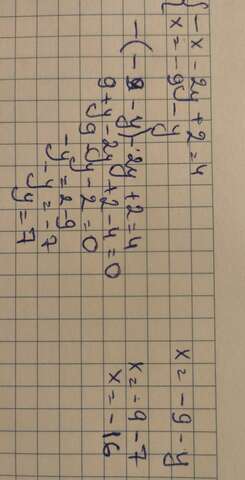 { -x - 2y + 2 = 4
x = -9 - y
-(-9 - y) - 2y + 2 = 4
9 + y - 2y + 2 - 4 = 0
9 - y - 2 = 0
-y = 2 - 9
-y = -7
y = 7
x = -9 - y
x = -9 - 7
x = -16